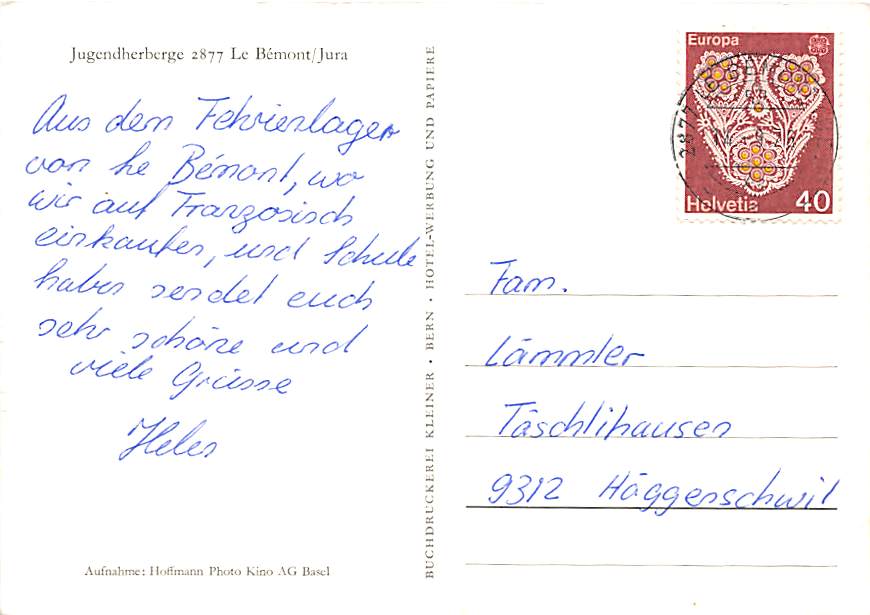 Jugendherberge 2877 Le Bémont/Jura
Aus dem Fehrienlager
von he Bémont, wo
wir auf Französisch
einkaufen, und Schule
haben sendet euch
sehr schöne und
viele Grüsse
Helen
Aufnahme: Hoffmann Photo Kino AG Basel
BUCHDRUCKEREI KLEINER · BERN · HOTEL-WERBUNG UND PAPIERE
Europa
Helvetia 40
2877
Fam.
Lämmler
Täschlihausen
9312 Häggenschwil